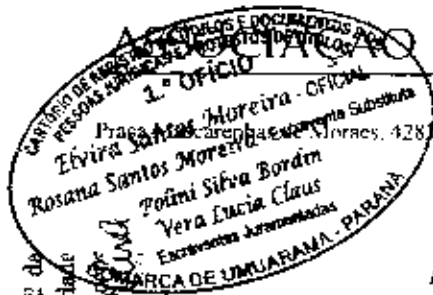 ASSOCIAÇÃO
CARTÓRIO DE REGISTRO DE TÍTULOS E DOCUMENTOS
PESSOAS JURÍDICAS E PROTESTOS DE TÍTULOS
1.º OFÍCIO
Elvira Santos Moreira - OFICIAL
Praça Mascarenhas de Moraes, 428
Rosana Santos Moreira - Escrevente Substituta
Polini Silva Bordin
Vera Lucia Claus
Escreventes Juramentadas
COMARCA DE UMUARAMA - PARANÁ